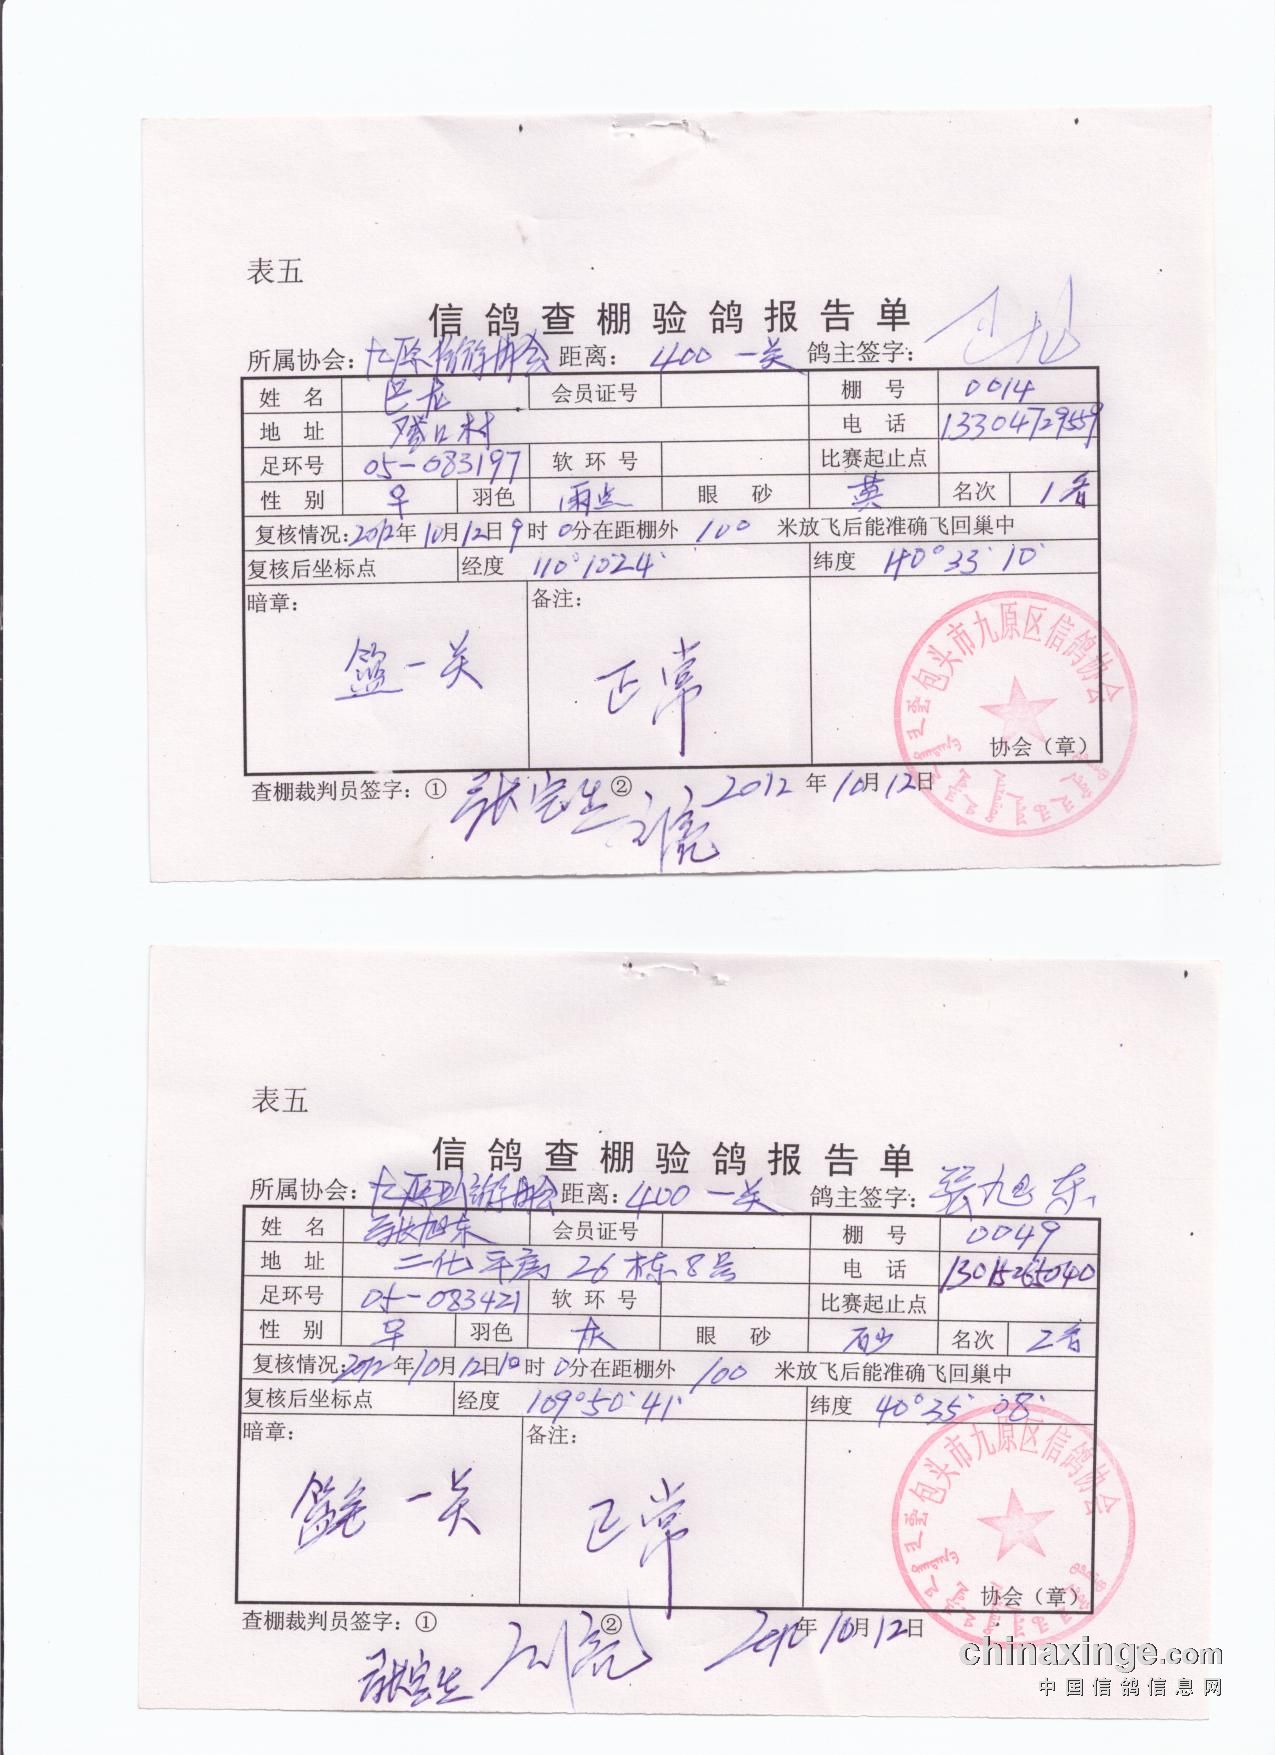 表五
信鸽查棚验鸽报告单
所属协会：九原 信鸽协会 距离：400 一关 鸽主签字：
姓 名 巴龙 会员证号 棚 号 0014
地 址 磴口村 电 话 13304729559
足环号 05-083197 软环号 比赛起止点
性 别 羽色 雨点 眼 砂 黄 名次 1
复核情况：2012年10月12日9时0分在距棚外100米放飞后能准确飞回巢中
复核后坐标点 经度 110°1024′ 纬度 40°33′10′
暗章： 备注：
一关 正常
包头市九原区信鸽协会
协会（章）
查棚裁判员签字：① 张宝生 ② 刘亮 2012年10月12日
表五
信鸽查棚验鸽报告单
所属协会：九原区信鸽协会 距离：400 一关 鸽主签字：张旭东
姓 名 张旭东 会员证号 棚 号 0049
地 址 二化平房26栋8号 电 话 13015265040
足环号 05-083421 软环号 比赛起止点
性 别 羽色 灰 眼 砂 砂 名次 2
复核情况：2012年10月12日10时0分在距棚外100米放飞后能准确飞回巢中
复核后坐标点 经度 109°50′41′ 纬度 40°35′08′
暗章： 备注：
一关 正常
包头市九原区信鸽协会
协会（章）
查棚裁判员签字：① 张宝生 ② 刘亮 2012年10月12日
chinaxinge.com
中国信鸽信息网